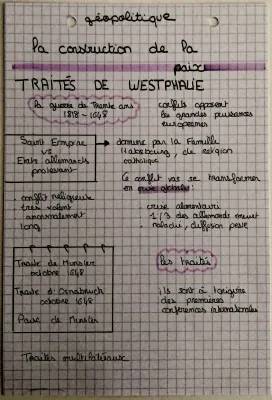 géopolitique
la construction de la
paix
TRAITÉS DE WESTPHALIE
la guerre de Trente ans
1818 - 1648
conflits opposent
les grandes puissances
européennes
Saint Empire
vs
Etats allemands
protestant
dominé par la Famille
Habsbourg, de religion
catholique
Ce conflit va se transformer
en crise globale :
. conflit religieux
très violent
anormalement
long
. crise alimentaire
. 1/3 des allemands meurt
. maladie, diffusion peste
Traité de Munster
octobre 1648
Traité d'Osnabruck
octobre 1648
Paix de Munster
les traités
ils sont à l'origine
des premières
conférences internationales
Traités multilatéraux